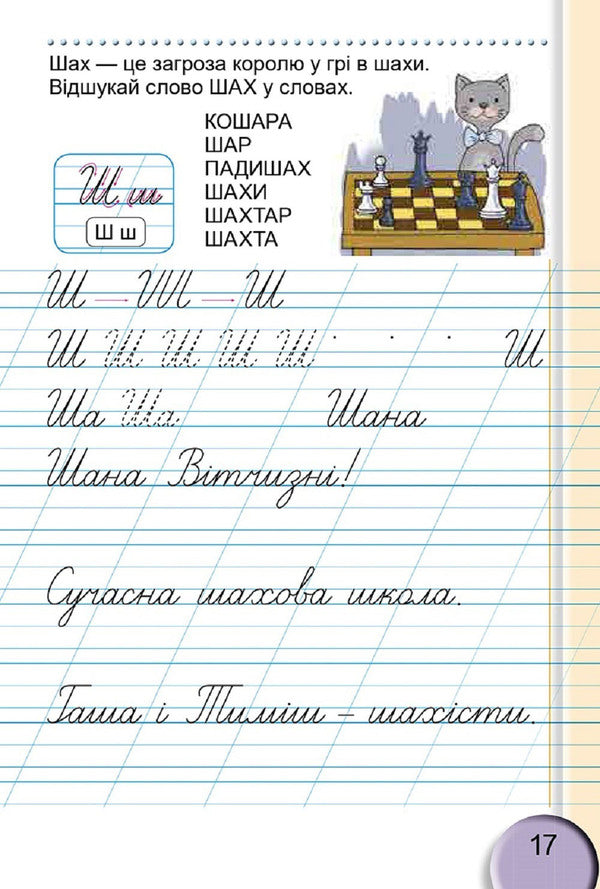 Шах — це загроза королю у грі в шахи.
Відшукай слово ШАХ у словах.
КОШАРА
ШАР
ПАДИШАХ
ШАХИ
ШАХТАР
ШАХТА
Ш ш
Ш ш
Ш Ш Ш
Ш Ш Ш Ш Ш Ш
Ша Ша Шана
Шана Вітчизні!
Сучасна шахова школа.
Гаша і Тиміш – шахісти.
17